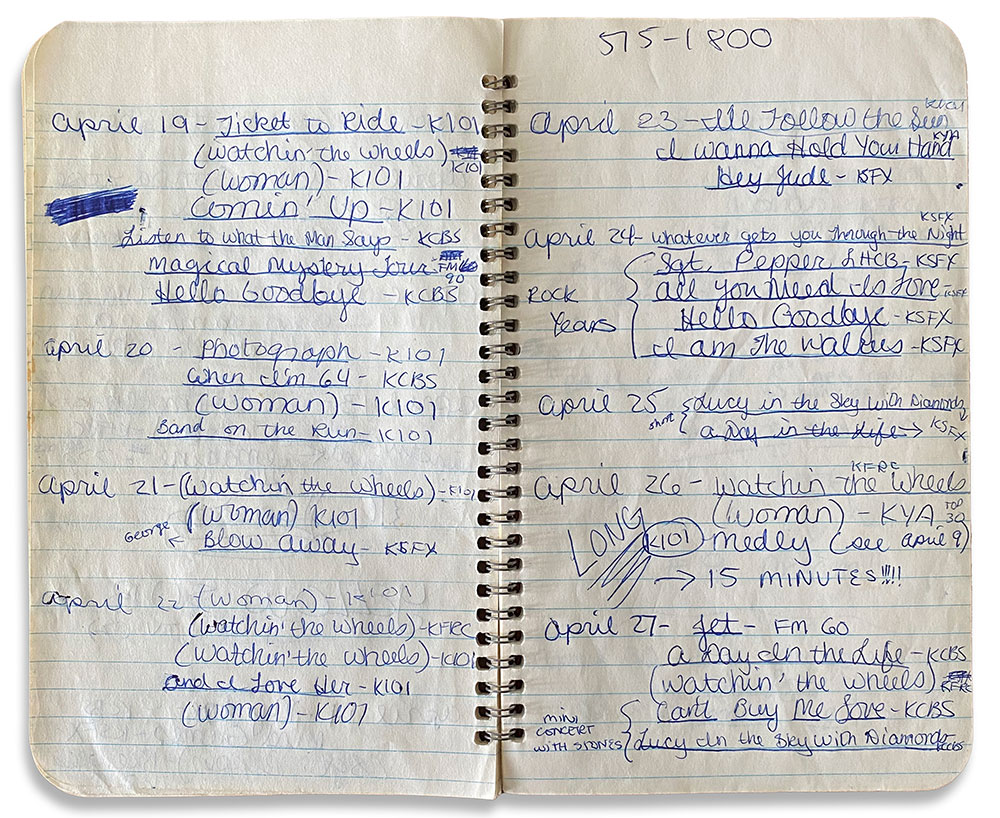 April 19 - Ticket to Ride - K101
(watchin' the wheels)
K101
(woman) - K101
Comin' Up - K101
Listen to what the Man Says - KCBS
Magical Mystery Tour - FM
90
Hello Goodbye - KCBS
April 20 - Photograph - K101
When I'm 64 - KCBS
(woman) - K101
Band on the Run - K101
April 21 - (Watchin the wheels) - K101
(woman) K101
George ← Blow away - KSFX
April 22 (woman) - K101
(watchin' the wheels) - KFRC
(watchin' the wheels) - K101
And I Love Her - K101
(woman) - K101
575-1800
April 23 - I'll Follow the Sun
KYA
I wanna Hold Your Hand
Hey Jude - KSFX
KSFX
April 24 - whatever gets you through the Night
Sgt. Pepper LHCB - KSFX
Rock Years
All you Need Is Love - KSFX
Hello Goodbye - KSFX
I am the Walrus - KSFX
April 25 Lucy in the Sky with Diamonds
short a Day in the Life → KSFX
KFRC
April 26 - watchin the wheels
(woman) - KYA TOP 30
LONG K101 medly (see april 9)
→ 15 MINUTES!!!!
April 27 - Jet - FM 60
a Day In the Life - KCBS
(watchin' the wheels) KFRC
Can't Buy Me Love - KCBS
mini
concert
with stones
Lucy In the Sky with Diamonds KCBS